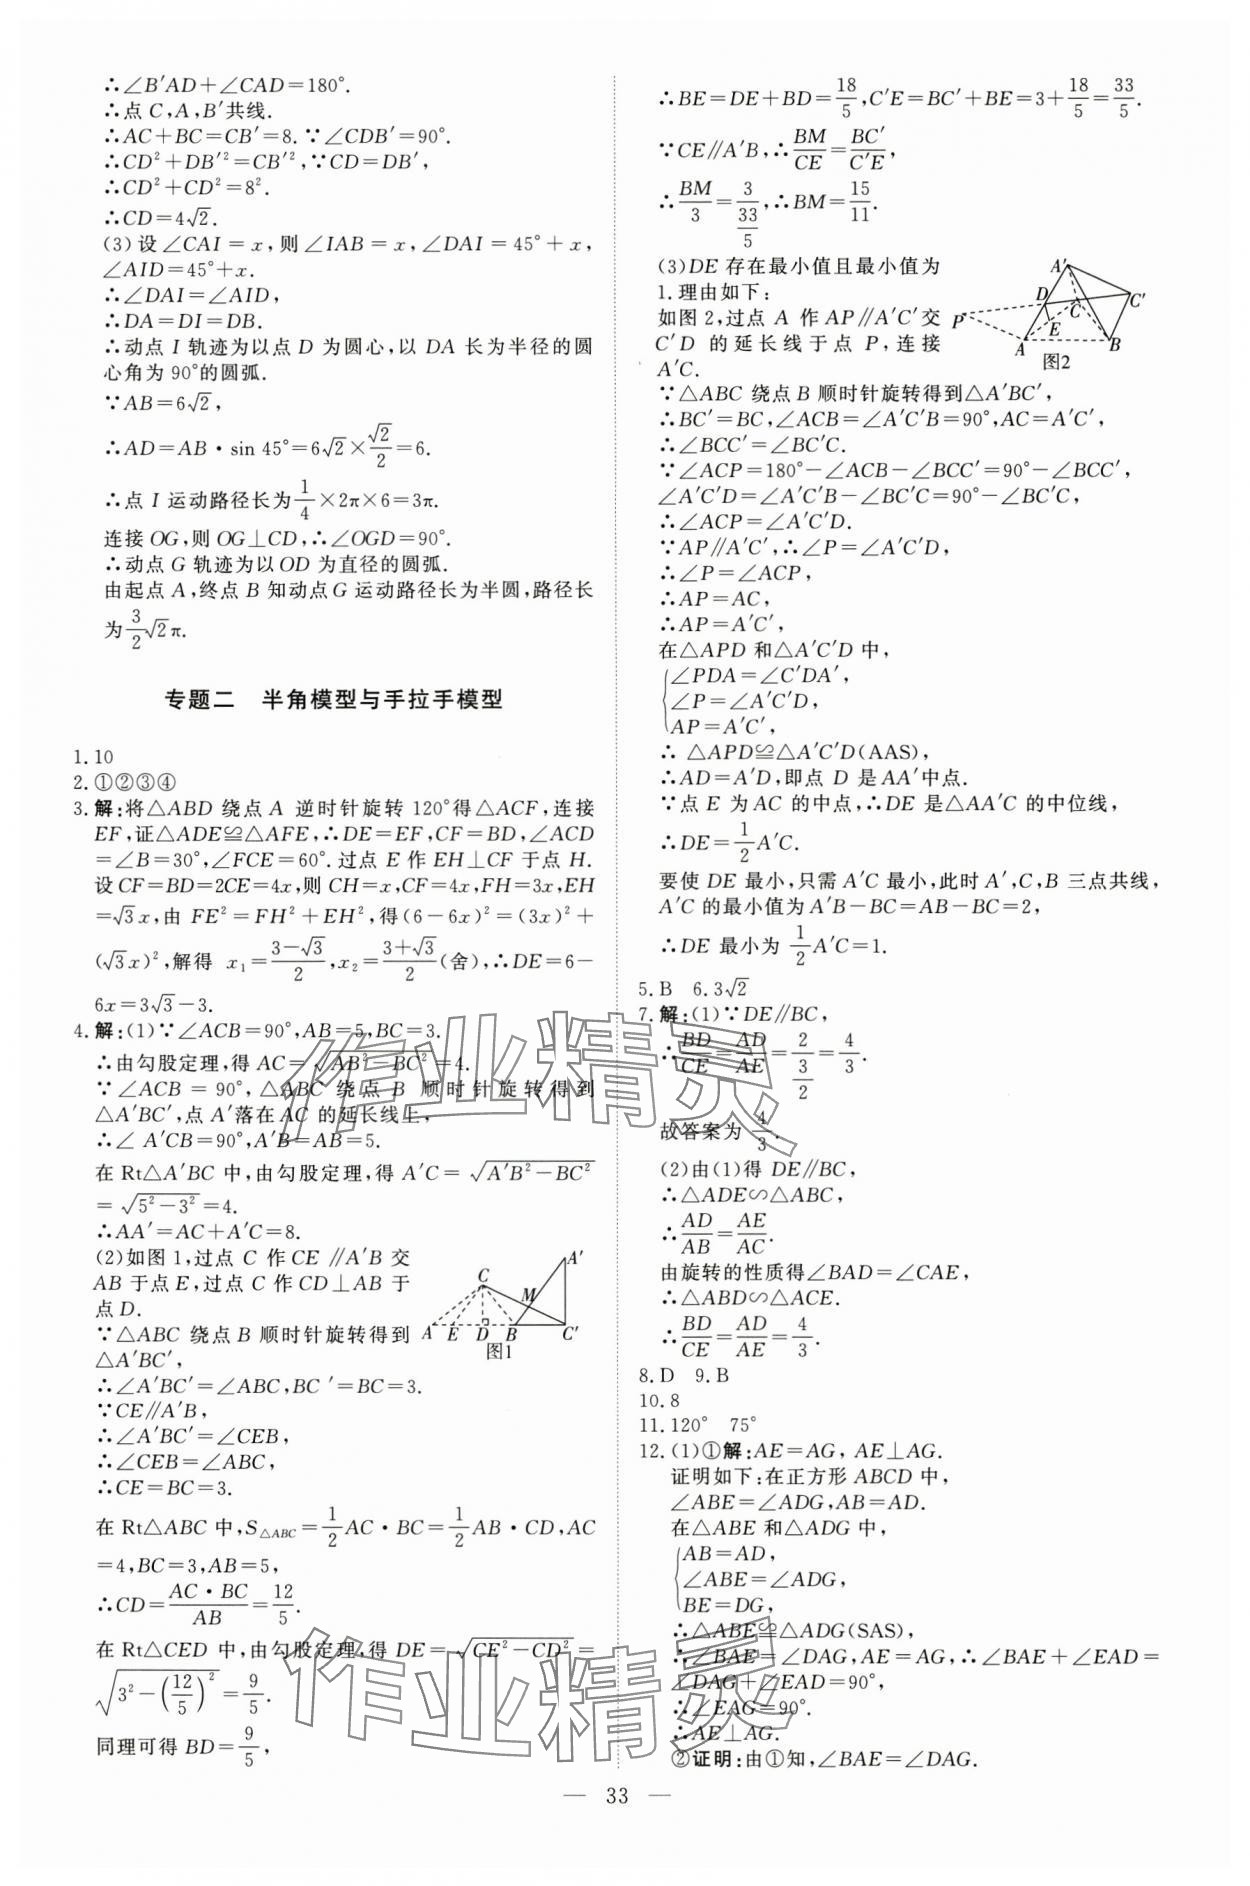 ∴∠B′AD+∠CAD=180°.
∴点 C,A,B′共线.
∴AC+BC=CB′=8.∵∠CDB′=90°.
∴CD²+DB′²=CB′²,∵CD=DB′,
∴CD²+CD²=8².
∴CD=4√2.
(3)设∠CAI=x,则∠IAB=x,∠DAI=45°+x,
∠AID=45°+x.
∴∠DAI=∠AID,
∴DA=DI=DB.
∴动点 I 轨迹为以点 D 为圆心,以 DA 长为半径的圆
心角为 90°的圆弧.
∵AB=6√2,
∴AD=AB·sin 45°=6√2×√2/2=6.
∴点 I 运动路径长为1/4×2π×6=3π.
连接 OG,则 OG⊥CD,∴∠OGD=90°.
∴动点 G 轨迹为以 OD 为直径的圆弧.
由起点 A,终点 B 知动点 G 运动路径长为半圆,路径长
为3/2√2π.
专题二 半角模型与手拉手模型
1.10
2.①②③④
3.解:将△ABD 绕点 A 逆时针旋转 120°得△ACF,连接
EF,证△ADE≌△AFE,∴DE=EF,CF=BD,∠ACD
=∠B=30°,∠FCE=60°.过点 E 作 EH⊥CF 于点 H.
设 CF=BD=2CE=4x,则 CH=x,CF=4x,FH=3x,EH
=√3x,由 FE²=FH²+EH²,得(6-6x)²=(3x)²+
(√3x)²,解得 x₁=(3-√3)/2,x₂=(3+√3)/2(舍),∴DE=6-
6x=3√3-3.
4.解:(1)∵∠ACB=90°,AB=5,BC=3.
∴由勾股定理,得 AC=√(AB²-BC²)=4.
∵∠ACB=90°,△ABC 绕点 B 顺时针旋转得到
△A′BC′,点 A′落在 AC 的延长线上,
∴∠A′CB=90°,A′B=AB=5.
在 Rt△A′BC 中,由勾股定理,得 A′C=√(A′B²-BC²)
=√(5²-3²)=4.
∴AA′=AC+A′C=8.
(2)如图 1,过点 C 作 CE∥A′B 交
AB 于点 E,过点 C 作 CD⊥AB 于
点 D.
∵△ABC 绕点 B 顺时针旋转得到
△A′BC′,
A′ C M A E D B C′
图1
∴∠A′BC′=∠ABC,BC′=BC=3.
∵CE∥A′B,
∴∠A′BC′=∠CEB,
∴∠CEB=∠ABC,
∴CE=BC=3.
在 Rt△ABC 中,S△ABC=1/2AC·BC=1/2AB·CD,AC
=4,BC=3,AB=5,
∴CD=AC·BC/AB=12/5.
在 Rt△CED 中,由勾股定理,得 DE=√(CE²-CD²)=
√(3²-(12/5)²)=9/5.
同理可得 BD=9/5,
∴BE=DE+BD=18/5,C′E=BC′+BE=3+18/5=33/5.
∵CE∥A′B,∴BM/CE=BC′/C′E,
∴BM/3=3/(33/5),∴BM=15/11.
(3)DE 存在最小值且最小值为
1.理由如下:
如图 2,过点 A 作 AP∥A′C′交
C′D 的延长线于点 P,连接
A′C.
A′ D C C′ P E A B
图2
∵△ABC 绕点 B 顺时针旋转得到△A′BC′,
∴BC′=BC,∠ACB=∠A′C′B=90°,AC=A′C′,
∴∠BCC′=∠BC′C.
∵∠ACP=180°-∠ACB-∠BCC′=90°-∠BCC′,
∠A′C′D=∠A′C′B-∠BC′C=90°-∠BC′C,
∴∠ACP=∠A′C′D.
∵AP∥A′C′,∴∠P=∠A′C′D,
∴∠P=∠ACP,
∴AP=AC,
∴AP=A′C′,
在△APD 和△A′C′D 中,
∠PDA=∠C′DA′,
∠P=∠A′C′D,
AP=A′C′,
∴△APD≌△A′C′D(AAS),
∴AD=A′D,即点 D 是 AA′中点.
∵点 E 为 AC 的中点,∴DE 是△AA′C 的中位线,
∴DE=1/2A′C.
要使 DE 最小,只需 A′C 最小,此时 A′,C,B 三点共线,
A′C 的最小值为 A′B-BC=AB-BC=2,
∴DE 最小为 1/2A′C=1.
5.B 6.3√2
7.解:(1)∵DE∥BC,
∴BD/CE=AD/AE=2/(3/2)=4/3.
故答案为 4/3.
(2)由(1)得 DE∥BC,
∴△ADE∽△ABC,
∴AD/AB=AE/AC.
由旋转的性质得∠BAD=∠CAE,
∴△ABD∽△ACE.
∴BD/CE=AD/AE=4/3.
8.D 9.B
10.8
11.120° 75°
12.(1)①解:AE=AG,AE⊥AG.
证明如下:在正方形 ABCD 中,
∠ABE=∠ADG,AB=AD.
在△ABE 和△ADG 中,
AB=AD,
∠ABE=∠ADG,
BE=DG,
∴△ABE≌△ADG(SAS),
∴∠BAE=∠DAG,AE=AG,∴∠BAE+∠EAD=
∠DAG+∠EAD=90°,
∴∠EAG=90°.
∴AE⊥AG.
②证明:由①知,∠BAE=∠DAG.
— 33 —
作业精灵
作业精灵